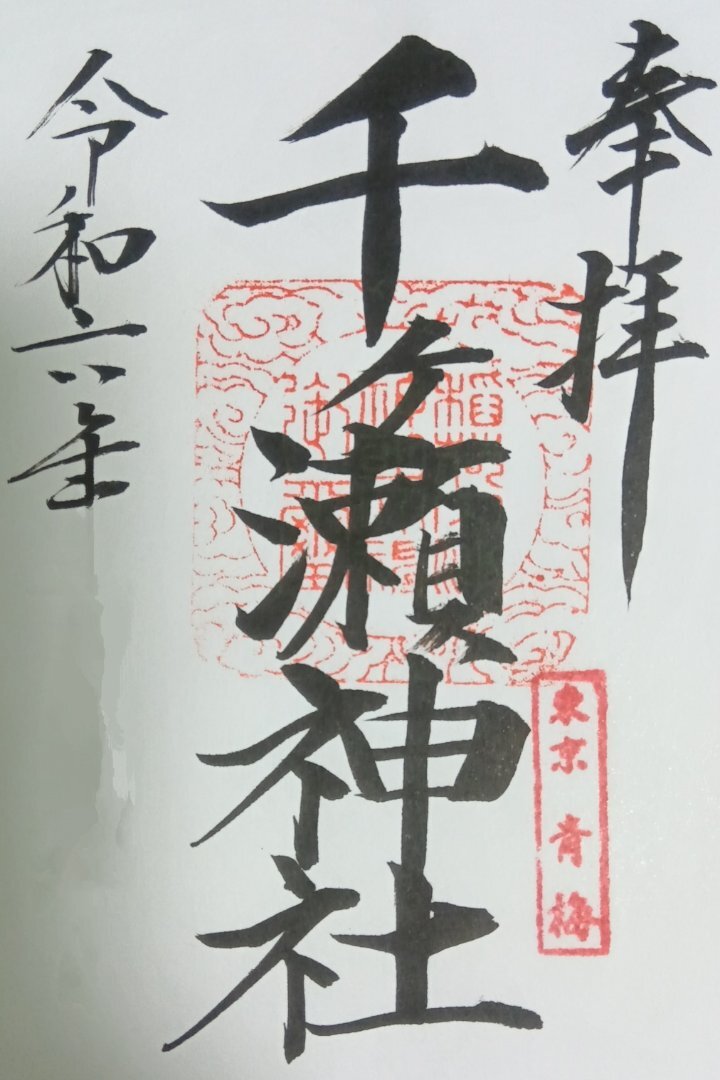 奉拝
千ヶ瀬神社
東京 青梅
令和六年